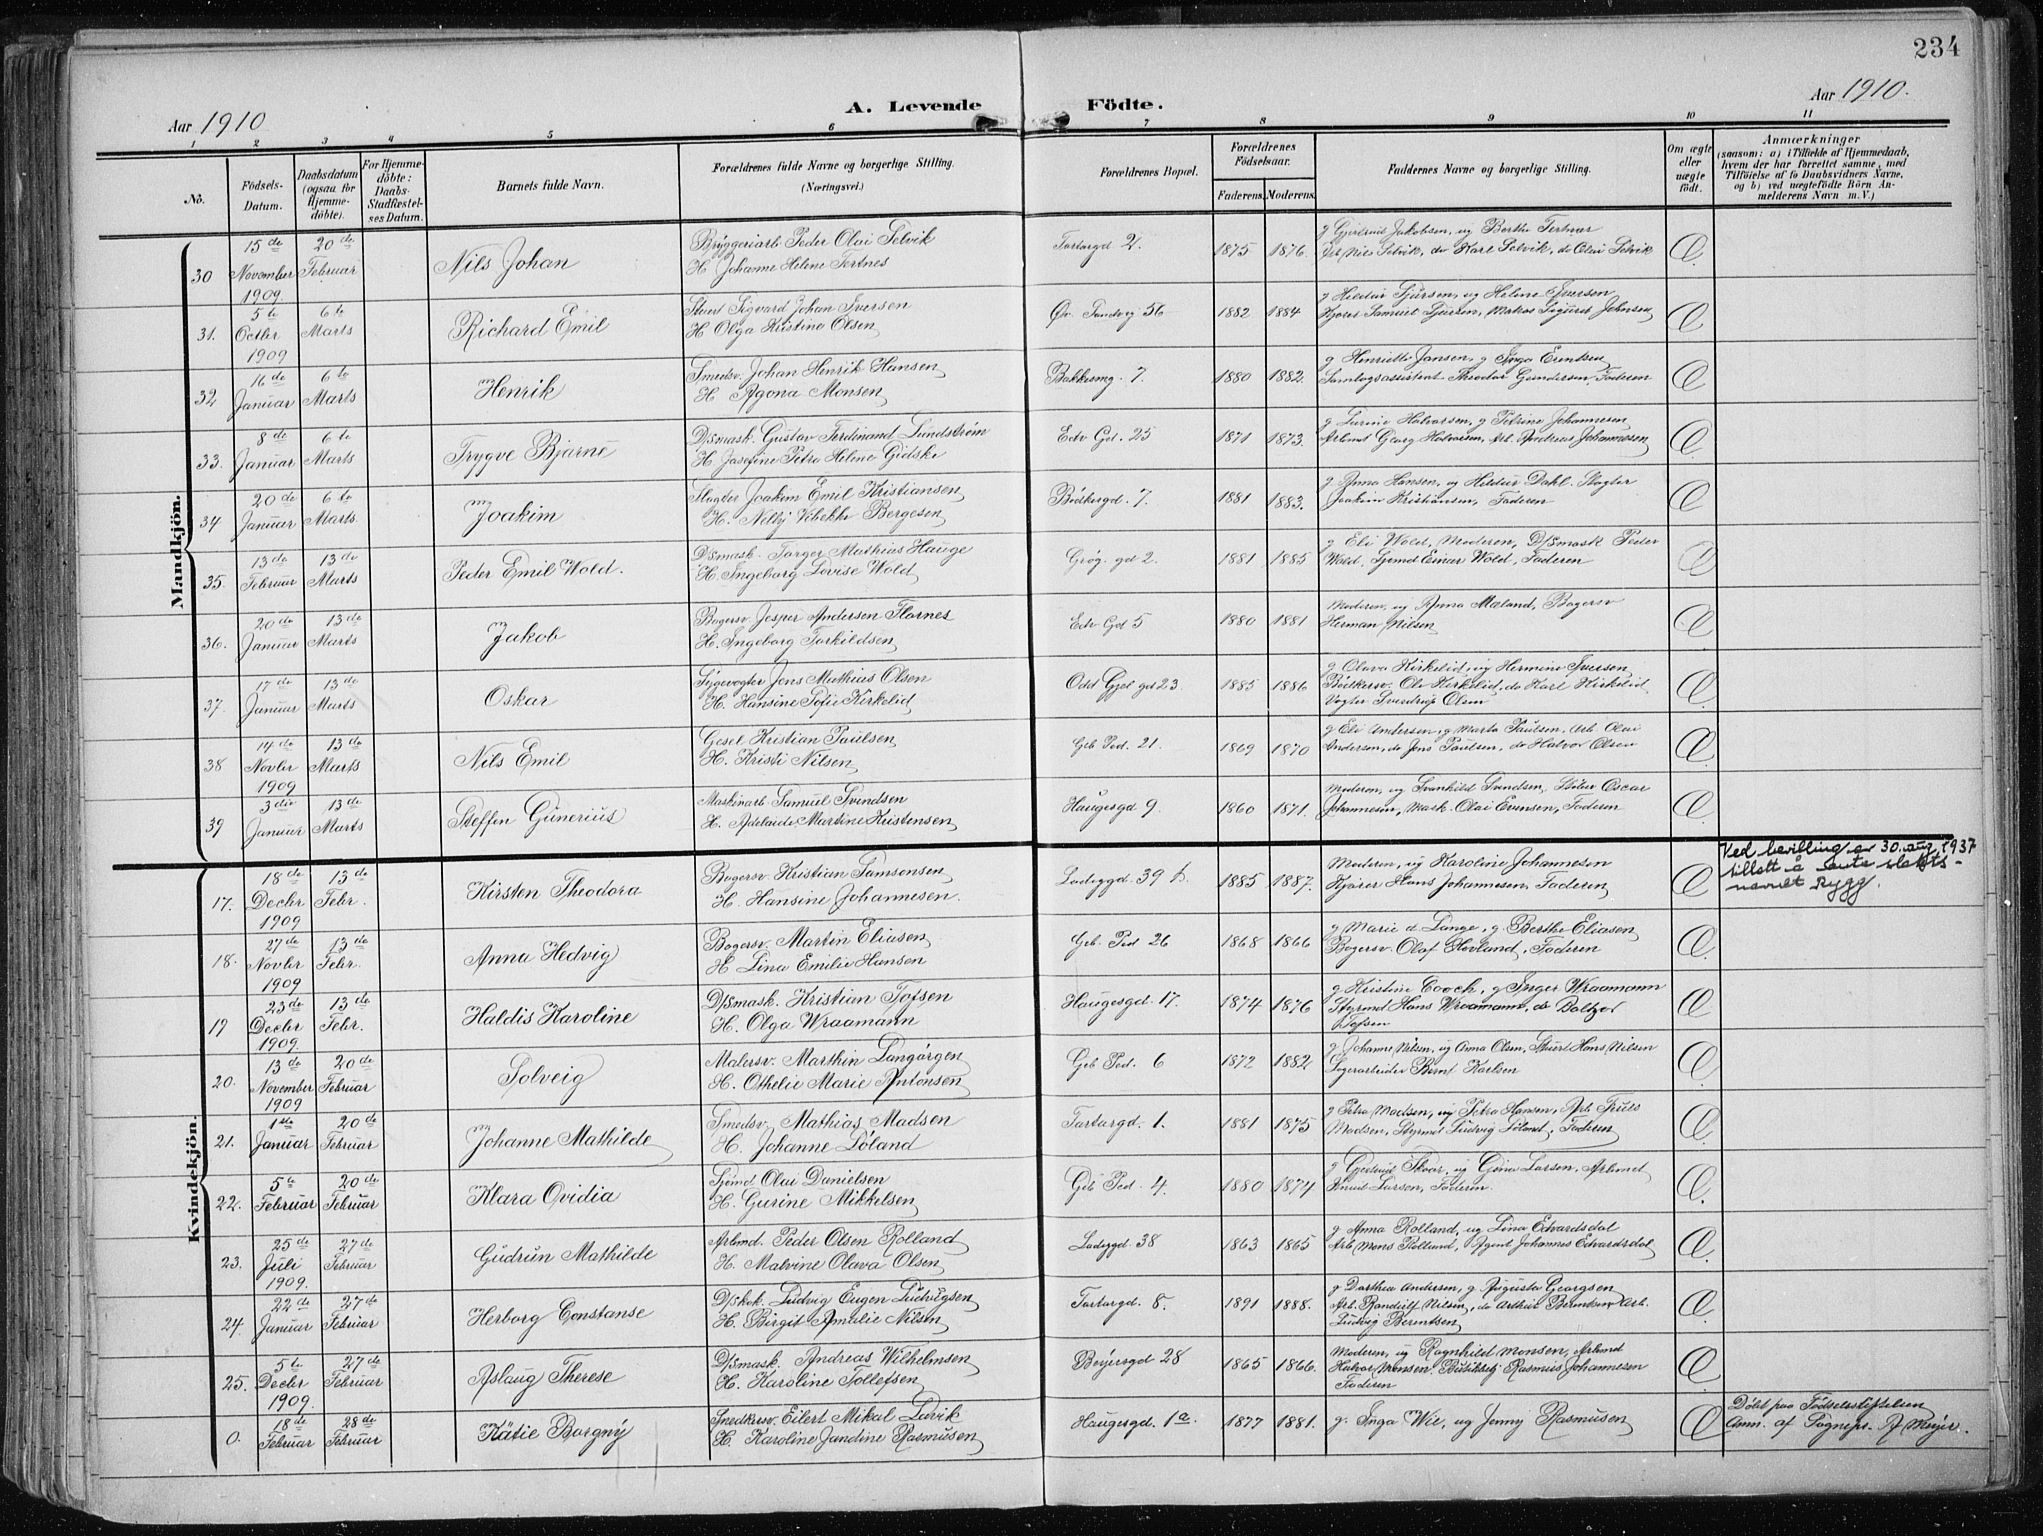 234
Aar 1910
A. Levende Födte.
Aar 1910.
1 2 3 4 5 6 7 8 9 10 11
No.
Födsels-Datum.
Daabsdatum (ogsaa for Hjemme-döbte).
For Hjemme-döbte: Daabs-Stadfæstel-ses Datum.
Barnets fulde Navn.
Forældrenes fulde Navne og borgerlige Stilling. (Næringsvei.)
Forældrenes Bopæl.
Forældrenes Födselsaar.
Faderens. Moderens.
Faddernes Navne og borgerlige Stilling.
Om ægte eller uægte födt.
Anmærkninger
(saasom: a) i Tilfælde af Hjemmedaab, hvem der har forrettet samme, med Tilföielse af to Daabsvidners Navne, og b) ved uægtefödte Börn An-melderens Navn m. V.)
Mandkjön.
30 15de November 1909. 20de Februar Nils Johan
Bryggeriarb Peder Olai Selvik
H. Johanne Helene Tertnes
Tartargd 2. 1875 1876.
Arb Nils Selvik, do Karl Selvik, do Olai Selvik
31. 5te Octbr 1909 6te Marts Richard Emil
Stuert Sigvard Johan Iversen
H. Olga Kristine Olsen
Öv. Sandvg 56 1882 1884
32 16de Januar 6te Marts Henrik
Smedsv. Johan Henrik Hansen
H. Agona Monsen
Bakkesmg. 7. 1880 1882.
g Henriette Jansen, g Inga Erentsen
Theodor Gundersen, Faderen
33. 8de Januar 6te Marts Trygve Bjarne
D/smask. Gustav Ferdinand Lundström
H. Josefine Petra Helene Gidske
Edv Gd. 25 1871 1873.
g Petrine Johannesen
Arbmd Georg Halvorsen, Arb. Andreas Johannessen
34 20de Januar 6te Marts Joakim
Slagter Joakim Emil Kristiansen
H. Nelly Vibekke Bergesen
Bödkergd. 7. 1881 1883.
g Anna Hansen, ug Hildur Dahl. Slagter
Joakim Kristiansen, Faderen
35. 13de Februar 13de Marts Peder Emil Wold.
D/smask. Torger Mathias Hauge
H. Ingeborg Lovise Wold
Grög. gd 2. 1881 1885
g Eli Wold, Moderen, D/smask Peder
Wold, Sjömd Einar Wold, Faderen
36. 20de Januar 13de Marts Jakob
Bagersv Jesper Andersen Flornes
H. Ingeborg Torkildsen
Edv Gd 5 1880 1881
Moderen, ug Anna Mæland, Bagersv
Herman Nilsen
37. 17de Januar 13de Marts Oskar
Sygevogter Jens Mathias Olsen
H. Hansine Sofie Kirkelid
Odd Gjel gd 23. 1885 1886
g Olava Kirkelid, ug Hermine Iversen
Bödkersv. Ole Kirkelid, do Karl Kirkelid,
Vogter Sverdrup Olsen
38 14de Novbr 1909 13de Marts Nils Emil
Gesel Kristian Paulsen
H. Kristi Nilsen
Geb Ped. 21. 1869 1870
g Eli Andersen, g Marta Paulsen, Arb Olai
Andersen, do Jens Paulsen, do Halvor Olsen
39 3die Januar 13de Marts Steffen Gunerius
Maskinarb Samuel Svendsen
H. Adelaide Martine Kristensen
Haugesgd 9. 1860 1871.
Moderen, ug Svanhild Svendsen, Stöber Oscar
Johannesen, Mask. Olai Evensen, Faderen
Kvindekjön.
17. 18de Decbr 1909 13de Febr. Kirsten Theodora
Bagersv. Kristian Samsonsen
H. Hansine Johannesen.
Ladeggd. 39 b. 1885 1887.
Moderen, ug Karoline Johannesen
Kjörer Hans Johannesen, Faderen
Ved bevilling av 30. aug. 1937
tillatt å anta slekts-
navnet Rygg.
18. 27de Novbr 1909 13de Febr. Anna Hedvig
Bagersv. Martin Eliasen
H Lina Emilie Hansen
Geb. Ped 26 1868 1866
g Marie d Lange, g. Berthe Eliasen
Bagersv. Olaf Hovland, Faderen
19 23de Decbr 1909. 13de Febr. Haldis Karoline
D/smask. Kristian Tofsen
H. Olga Wraamann
Haugesgd. 17. 1874 1876
g Kristine Coock, g Inger Wraamann
Styrmd Hans Wraamann, do Baltzer
Tofsen
20. 13de November 1909 20de Februar Solveig
Malersv. Marthin Langörgen
H. Othelie Marie Antonsen
Geb Ped. 6 1872 1882
g Johanne Nilsen, ug Anna Olsen, Stuert Hans Nilsen
Bernt Karlsen
21. 1ste Januar 20de Februar Johanne Mathilde
Smedsv. Mathias Madsen
H. Johanne Löland
Tartargd. 1. 1881 1875
g Petra Madsen, ug Petra Hansen, Arb Truls
Madsen, Styrmd Ludvig Löland, Faderen
22. 5te Februar 20de Februar Klara Ovidia
Sjömd Olai Danielsen
H. Gurine Mikkelsen
Geb Ped. 4. 1880 1874
g Gjertrud Skaar, ug Gina Larsen, Arbmd
Knud Larsen, Faderen.
23. 25de Juli 1909. 27de Februar Gudrun Mathilde
Arbmd. Peder Olsen Rolland
H. Malvine Olava Olsen
Ladeggd. 38 1863 1865
g Anna Rolland, ug Lina Edvardsdal
Arb Mons Rolland, Agent Johannes Edvardsdal
24. 22de Januar 27de Februar Herborg Constanse
D/skok. Ludvig Eugen Ludvigsen
H. Birgit Amalie Nilsen
Tartargd. 8. 1891 1888.
g Dorthea Andersen, g Augusta Georgsen
Arb. Randulf Nilsen, do Arthur Berentsen Arb.
Ludvig Berentsen
25. 5te Decbr 1909. 27de Februar Aslaug Therese
D/smask. Andreas Wilhelmsen
H. Karoline Tollefsen
Beyersgd 28 1865 1866.
Moderen, ug Ragnhild Monsen, Arbmd
Halvor Monsen. Rasmus Johannesen
Faderen
0. 18de Februar 28de Februar Kätie Borgny
Snedkersv. Eilert Mikal Lavik
H. Karoline Jandine Rasmusen
Haugesgd. 1a. 1877 1881.
g. Inga Wie, ug Jenny Rasmusen
Döbt paa Födselsstiftelsen
Anm. af Sognepr. Meyer.